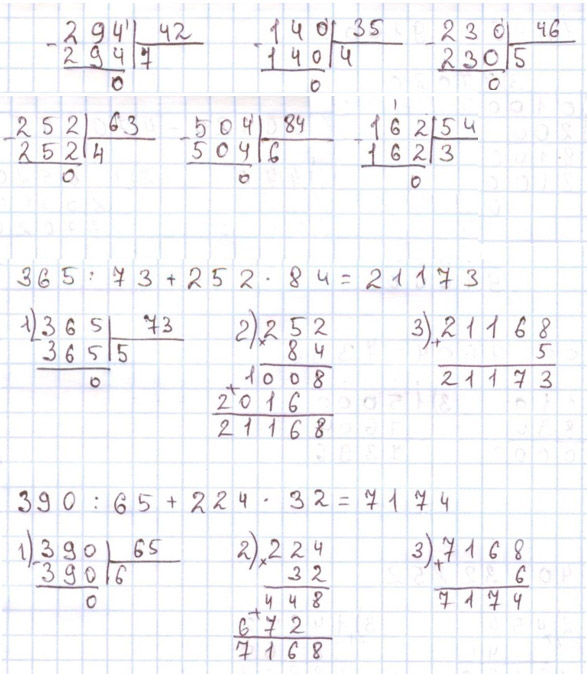 - 294 | 42   - 140 | 35   - 230 | 46
294 | 7   140 | 4   230 | 5
0   0   0
- 252 | 63   - 504 | 84   - 162 | 54
252 | 4   504 | 6   162 | 3
0   0   0
365 : 73 + 252 · 84 = 21173
1) - 365 | 73   2) × 252   3) + 21168
365 | 5   84   5
0   1008   21173
+ 2016
21168
390 : 65 + 224 · 32 = 7174
1) - 390 | 65   2) × 224   3) + 7168
390 | 6   32   6
0   448   7174
+ 672
7168